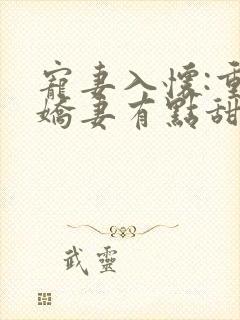 寵妻入懷:重
嬌妻有點甜
武靈